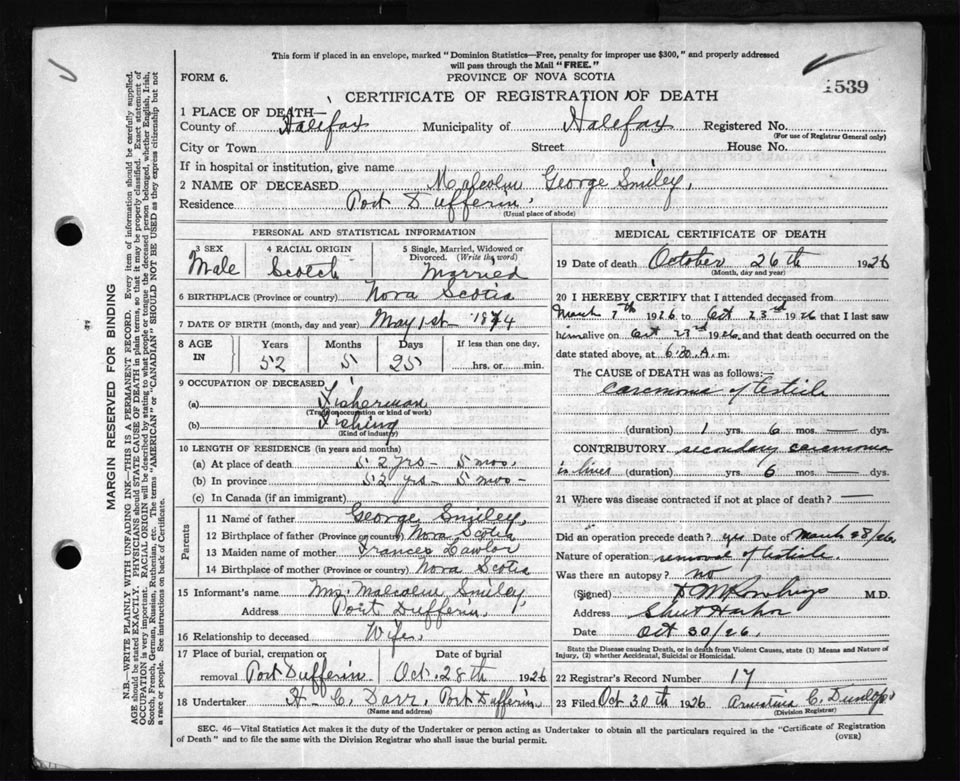 This form if placed in an envelope, marked "Dominion Statistics—Free, penalty for improper use $300," and properly addressed
will pass through the Mail "FREE."
FORM 6.
PROVINCE OF NOVA SCOTIA
1539
CERTIFICATE OF REGISTRATION OF DEATH
1 PLACE OF DEATH—
County of Halifax Municipality of Halifax Registered No.
(For use of Registrar General only)
City or Town Street House No.
If in hospital or institution, give name
2 NAME OF DECEASED Malcolm George Smiley,
Residence Port Dufferin,
(Usual place of abode)
PERSONAL AND STATISTICAL INFORMATION
3 SEX 4 RACIAL ORIGIN 5 Single, Married, Widowed or
Divorced. (Write the word)
Male Scotch Married
6 BIRTHPLACE (Province or country) Nova Scotia
7 DATE OF BIRTH (month, day and year) May 1st 1874
8 AGE IN Years Months Days If less than one day,
52 5 25 hrs. or min.
9 OCCUPATION OF DECEASED
(a) Fisherman
(Trade, occupation or kind of work)
(b) Fishing
(Kind of industry)
10 LENGTH OF RESIDENCE (in years and months)
(a) At place of death 52 yrs - 5 mos.
(b) In province 52 yrs - 5 mos -
(c) In Canada (if an immigrant)
Parents
11 Name of father George Smiley,
12 Birthplace of father (Province or country) Nova Scotia
13 Maiden name of mother Frances Lawlor
14 Birthplace of mother (Province or country) Nova Scotia
15 Informant's name Mrs. Malcolm Smiley,
Address Port Dufferin,
16 Relationship to deceased Wife,
17 Place of burial, cremation or Date of burial
removal Port Dufferin Oct. 28th 1926
18 Undertaker H. C. Port Dufferin
(Name and address)
MEDICAL CERTIFICATE OF DEATH
19 Date of death October 26th 1926
(Month, day and year)
20 I HEREBY CERTIFY that I attended deceased from
March 7th 1926 to Oct 23rd 1926 that I last saw
him alive on Oct 23rd 1926, and that death occurred on the
date stated above, at 6.30 A. m.
The CAUSE OF DEATH was as follows:—
carcinoma of testicle
(duration) 1 yrs. 6 mos. — dys.
CONTRIBUTORY secondary carcinoma
in liver (duration) yrs. 6 mos. — dys.
21 Where was disease contracted if not at place of death? —
Did an operation precede death? yes Date of March 28/26
Nature of operation removal of testicle.
Was there an autopsy? no
(Signed) M.D.
Address
Date Oct 30/26.
State the Disease causing Death, or in death from Violent Causes, state (1) Means and Nature of
Injury, (2) whether Accidental, Suicidal or Homicidal.
22 Registrar's Record Number 17
23 Filed Oct 30th 1926 C. Dunlop
(Division Registrar)
SEC. 46—Vital Statistics Act makes it the duty of the Undertaker or person acting as Undertaker to obtain all the particulars required in the "Certificate of Registration
of Death" and to file the same with the Division Registrar who shall issue the burial permit.
(OVER)
MARGIN RESERVED FOR BINDING
N.B.—WRITE PLAINLY WITH UNFADING INK—THIS IS A PERMANENT RECORD. Every item of information should be carefully supplied.
AGE should be stated EXACTLY. PHYSICIANS should STATE CAUSE OF DEATH in plain terms, so that it may be properly classified. Exact statement of
OCCUPATION is very important. RACIAL ORIGIN will be described by stating to what people or tongue the deceased person belonged, whether English, Irish,
Scotch, French, German, Russian, Ruthenian, etc. The terms "AMERICAN" or "CANADIAN" SHOULD NOT BE USED as they express citizenship but not
a race or people. See instructions on back of Certificate.